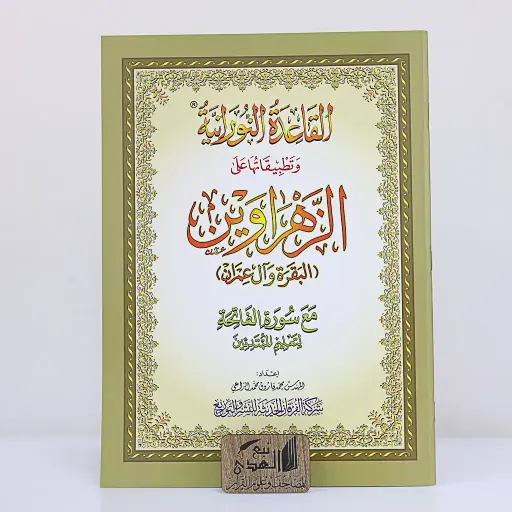 القَاعِدَةُ النُّورَانِيَّةُ ®
وَتَطْبِيقَاتُهَا عَلَى
الزَّهْرَاوَيْنِ
(البَقَرَةِ وَآلِ عِمْرَانَ)
مَعَ سُورَةِ الفَاتِحَةِ
لِتَعْلِيمِ المُبْتَدِئِينَ
إعداد:
المهندس محمد فاروق محمد الراعي
شركة الفرقان الحديثة للنشر والتوزيع
نبع
الهدى
للمصاحف وعلوم القرآن